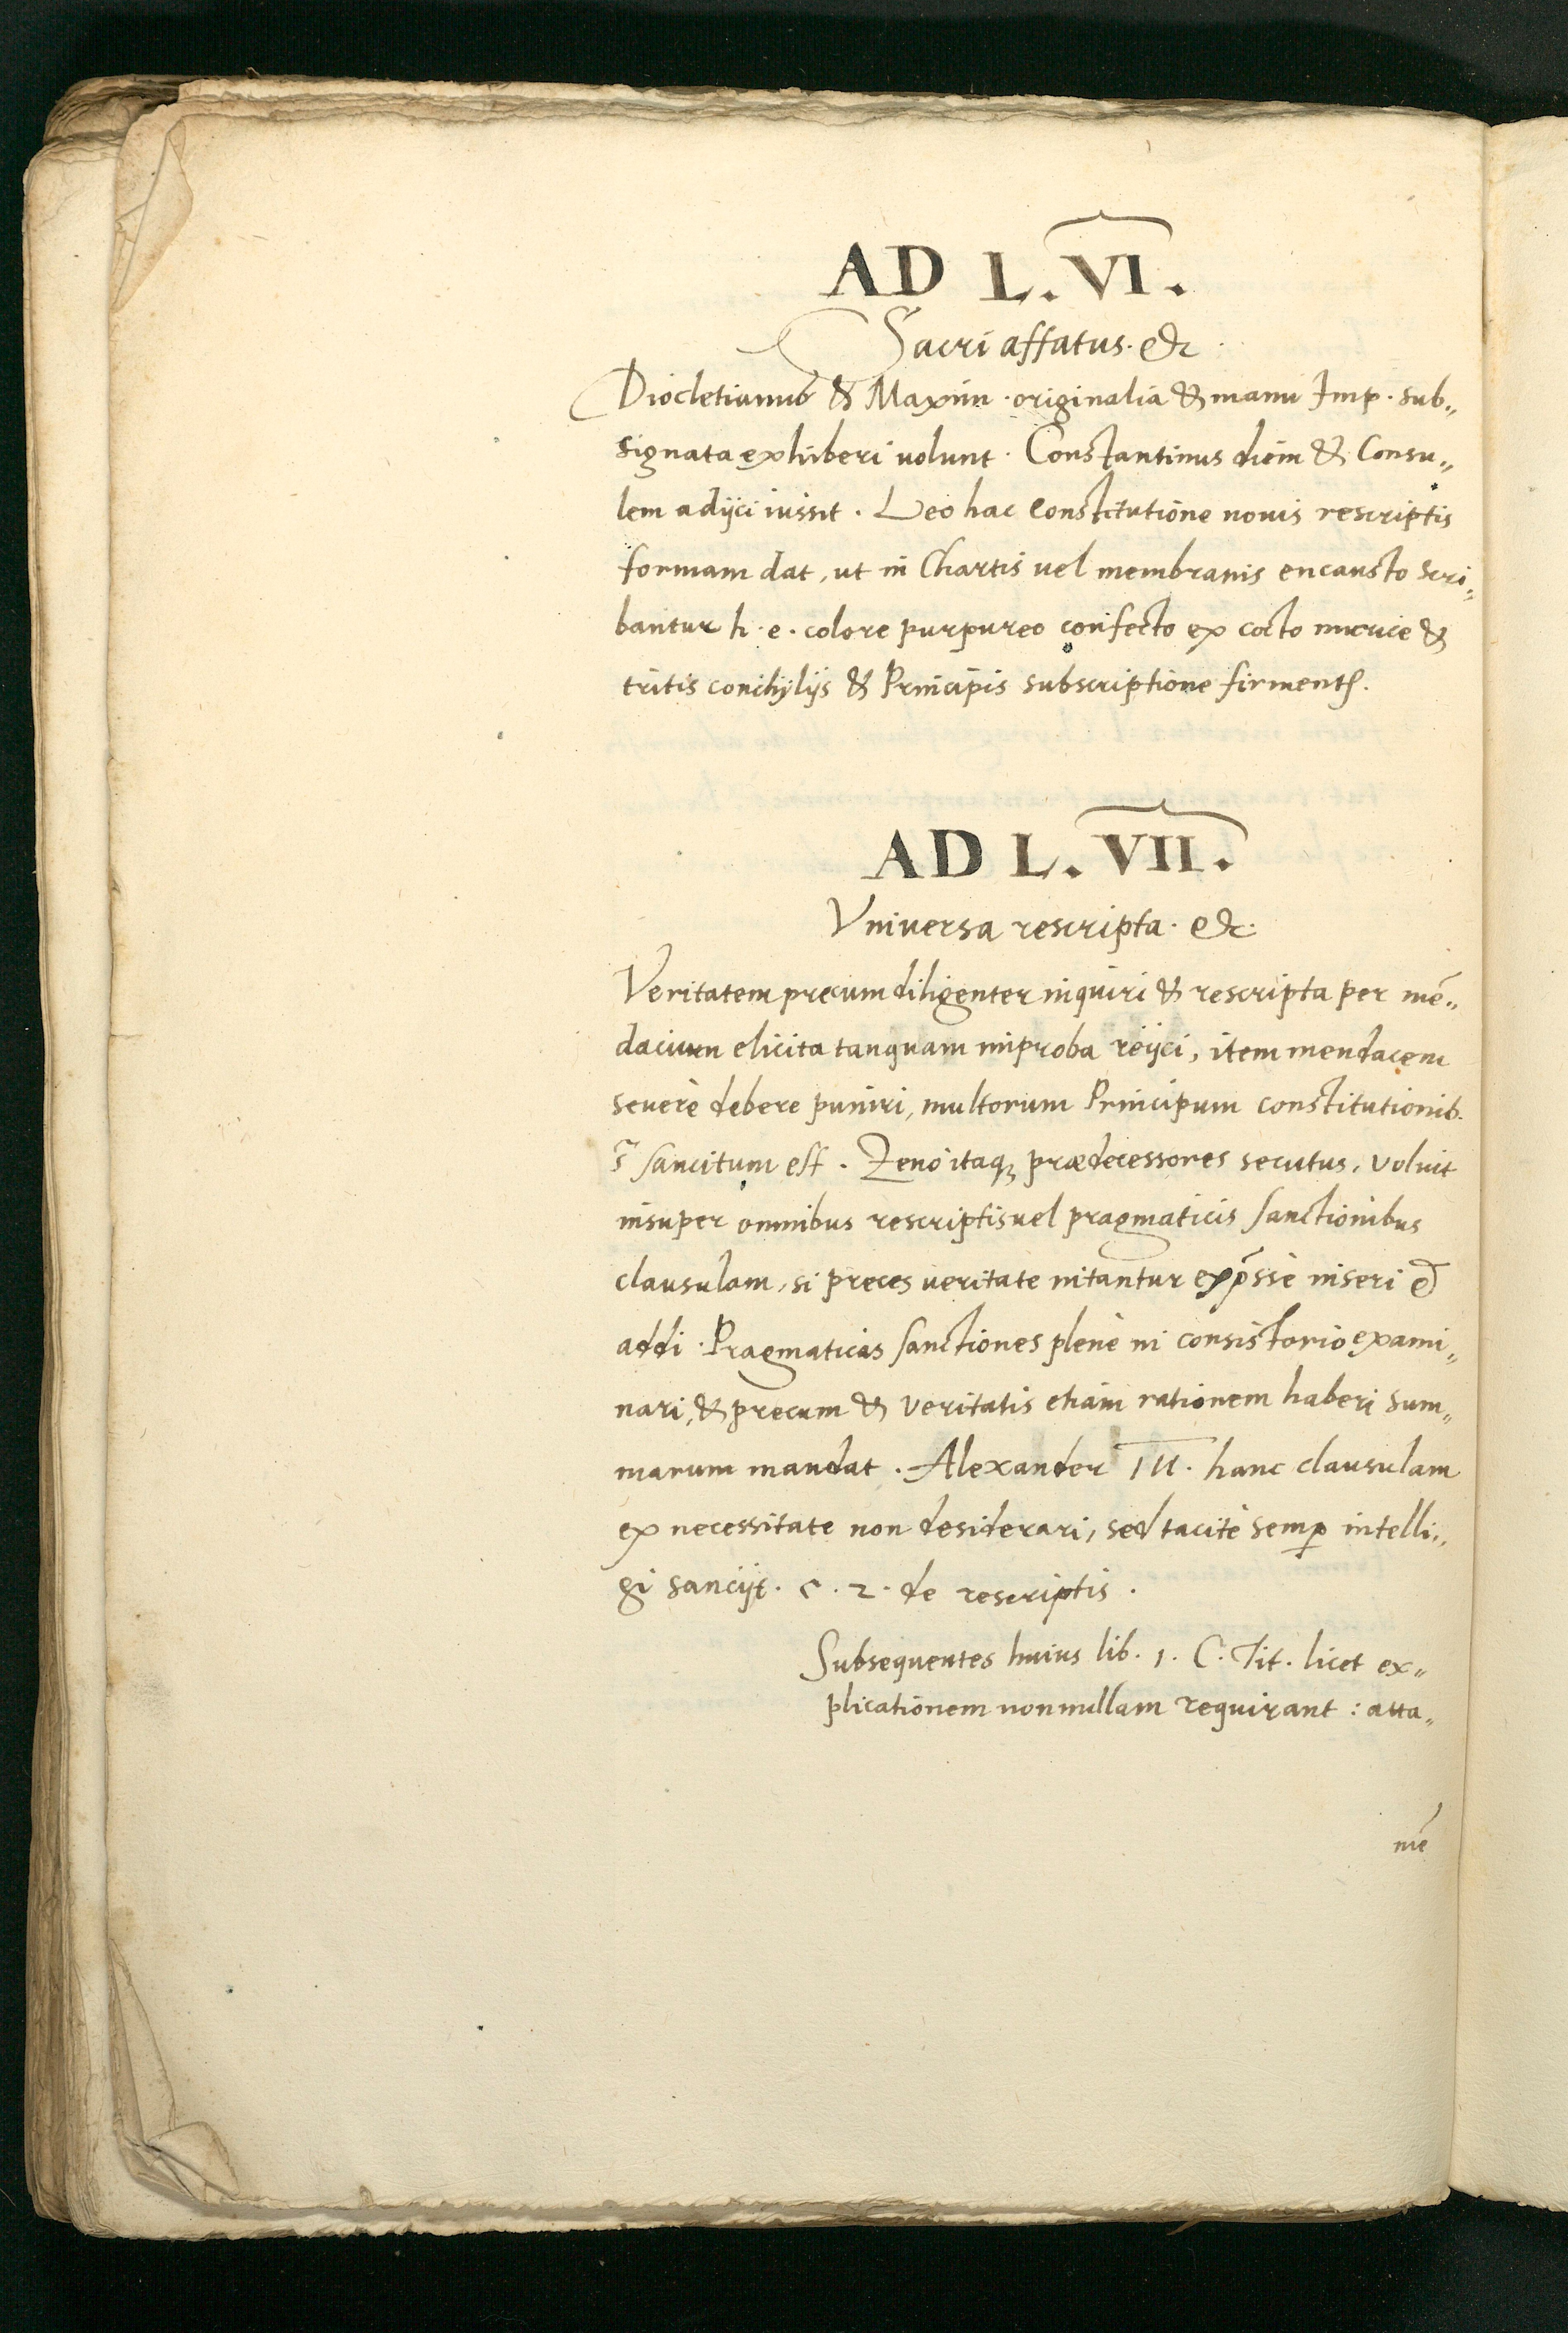 AD L. VI.
Sacri affatus. &c
Diocletianus & Maxim. originalia & manu Imp. sub„
signata exhiberi uolunt. Constantinus diem & Consu„
lem adijci iussit. Leo hac Constitutione nouis rescriptis
formam dat, ut in Chartis uel membranis encausto scri„
bantur h. e. colore purpureo confecto ex cocto murice &
tritis conchylijs & Principis subscriptione firment᷑.
AD L. VII.
Vniversa rescripta. &c.
Veritatem precum diligenter inquiri & rescripta per mē„
dacium elicita tanquam improba reijci, item mendacem
seuerè debere puniri, multorum Principum constitutionib.
sancitum est. Zeno itaq; prædecessores secutus, voluit
insuper omnibus rescriptis uel pragmaticis sanctionibus
clausulam, si preces ueritate nitantur exp̄ssè inseri &
addi. Pragmaticas sanctiones plenè in consistorio exami„
nari, & precum & veritatis etiam rationem haberi sum„
marum mandat. Alexander III. hanc clausulam
ex necessitate non desiderari, sed tacitè semꝑ intelli„
gi sancijt. c. 2. de rescriptis.
Subsequentes huius lib. 1. C. Tit. licet ex„
plicationem nonnullam requirant: atta„
mē